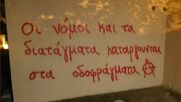 Οι νόμοι και τα
διατάγματα καταργούνται
στα οδοφράγματα Ⓐ